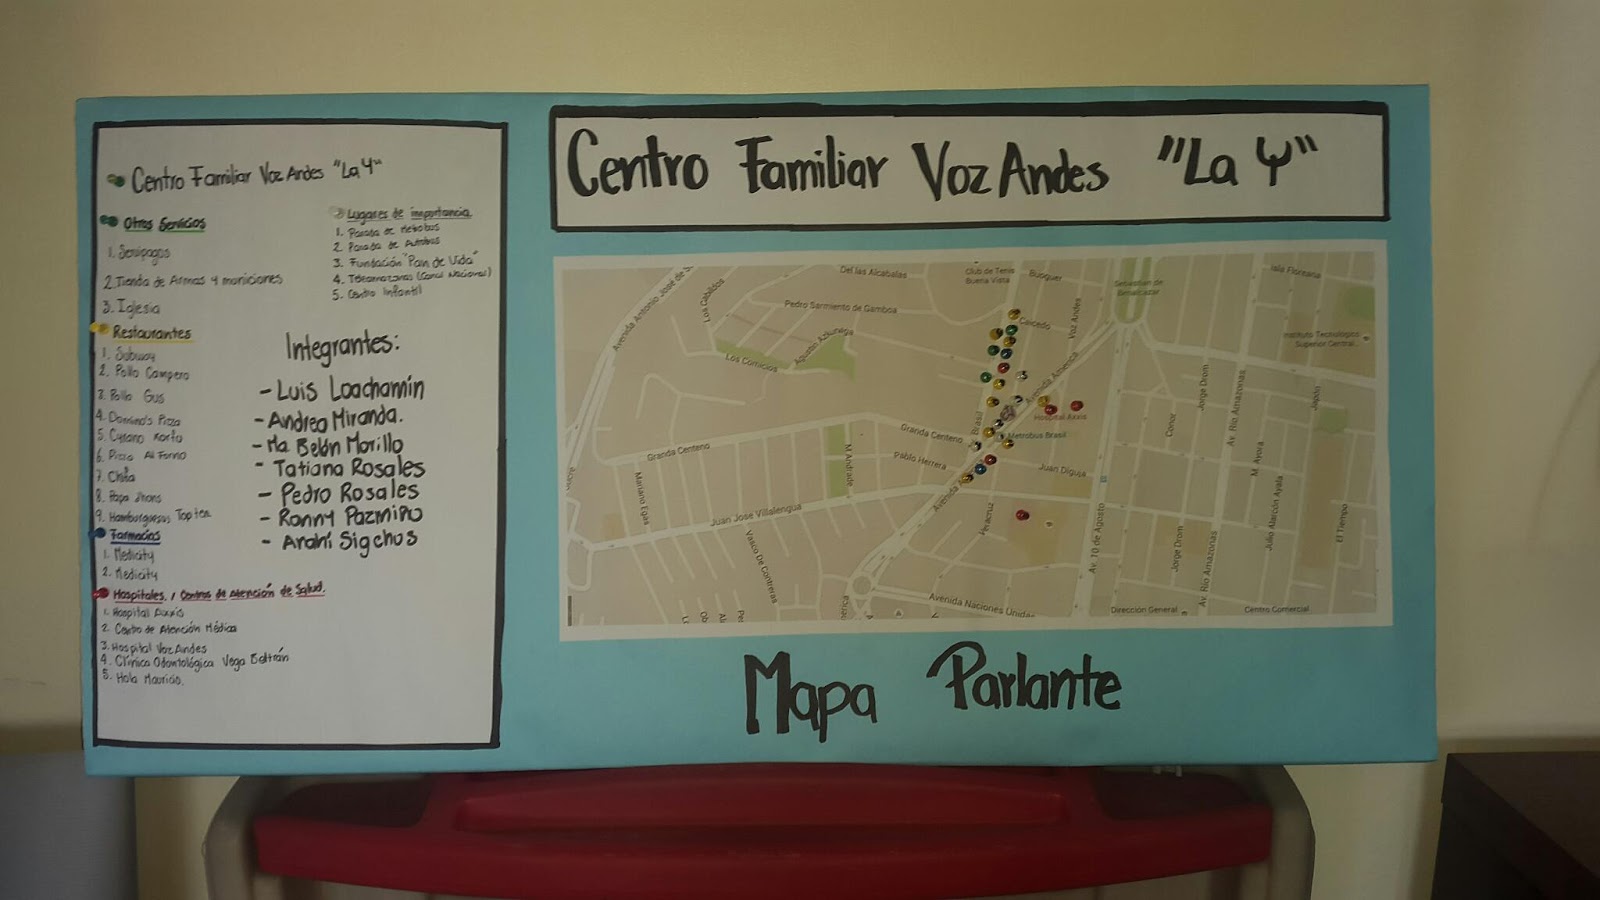 Centro Familiar Voz Andes "La Y"
Otros Servicios
1. Servipagos
2. Tienda de Armas y municiones
3. Iglesia
Restaurantes
1. Subway
2. Pollo Campero
3. Pollo Gus
4. Domino's Pizza
5. Cyrano Korfu
6. Pizza Al Forno
7. Chifa
8. Papa Jhons
9. Hamburguesas Top ten
Farmacias
1. Medicity
2. Medicity
Hospitales / Centros de Atención de Salud.
1. Hospital Axxis
2. Centro de Atención Médica
3. Hospital Voz Andes
4. Clínica Odontológica Vega Beltrán
5. Hola Mauricio.
Lugares de importancia
1. Parada de Metrobus
2. Parada de Autobus
3. Fundación "Pan de Vida"
4. Teleamazonas (Canal Nacional)
5. Centro Infantil
Integrantes:
- Luis Loachamín
- Andrea Miranda.
- Ma Belén Morillo
- Tatiana Rosales
- Pedro Rosales
- Ronny Pazmiño
- Arahí Sigchos
Centro Familiar Voz Andes "La Y"
Avenida Antonio José de S
Los Cabildos
Del las Alcabalas
Pedro Sarmiento de Gamboa
Agustin Azkunaga
Los Comicios
Club de Tenis
Buena Vista
Buguer
Caicedo
Voz Andes
Sebastian de
Benalcazar
Isla Floreana
Instituto Tecnológico
Superior Central
Avenida America
Jorge Drom
Av. Rio Amazonas
Japon
Brasil
Hospital Axxis
Metrobus Brasil
Granda Centeno
Granda Centeno
Conor
M. Ayora
Pablo Herrera
Juan Diguja
M Andrade
Mariano Egas
Sucre
Avenida A
Juan Jose Villalengua
Veracruz
Av. 10 de Agosto
Jorge Drom
Av. Rio Amazonas
Julio Alarcón Ayala
El Tiempo
Vasco De Contreras
Avenida Naciones Unidas
Dirección General
Centro Comercial
Mapa Parlante